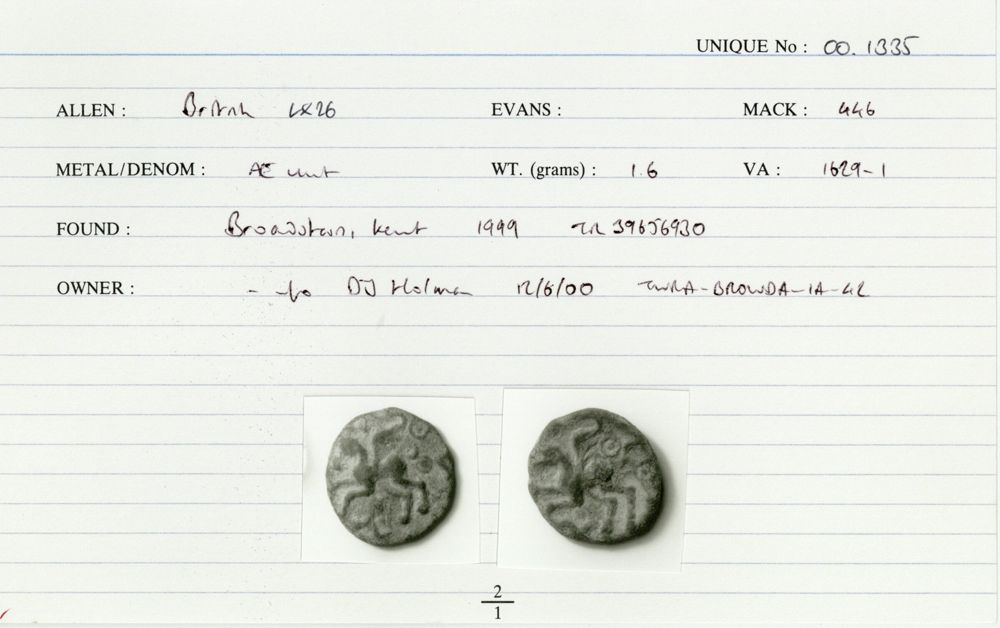 UNIQUE No : 00.1335
ALLEN : British LX26 EVANS : MACK : 446
METAL/DENOM : AE unit WT. (grams) : 1.6 VA : 1629-1
FOUND : Broadstairs, Kent 1999 TR 39656930
OWNER : - DJ Holman 12/6/00 TWRA-BROWDA-IA-42
2
1